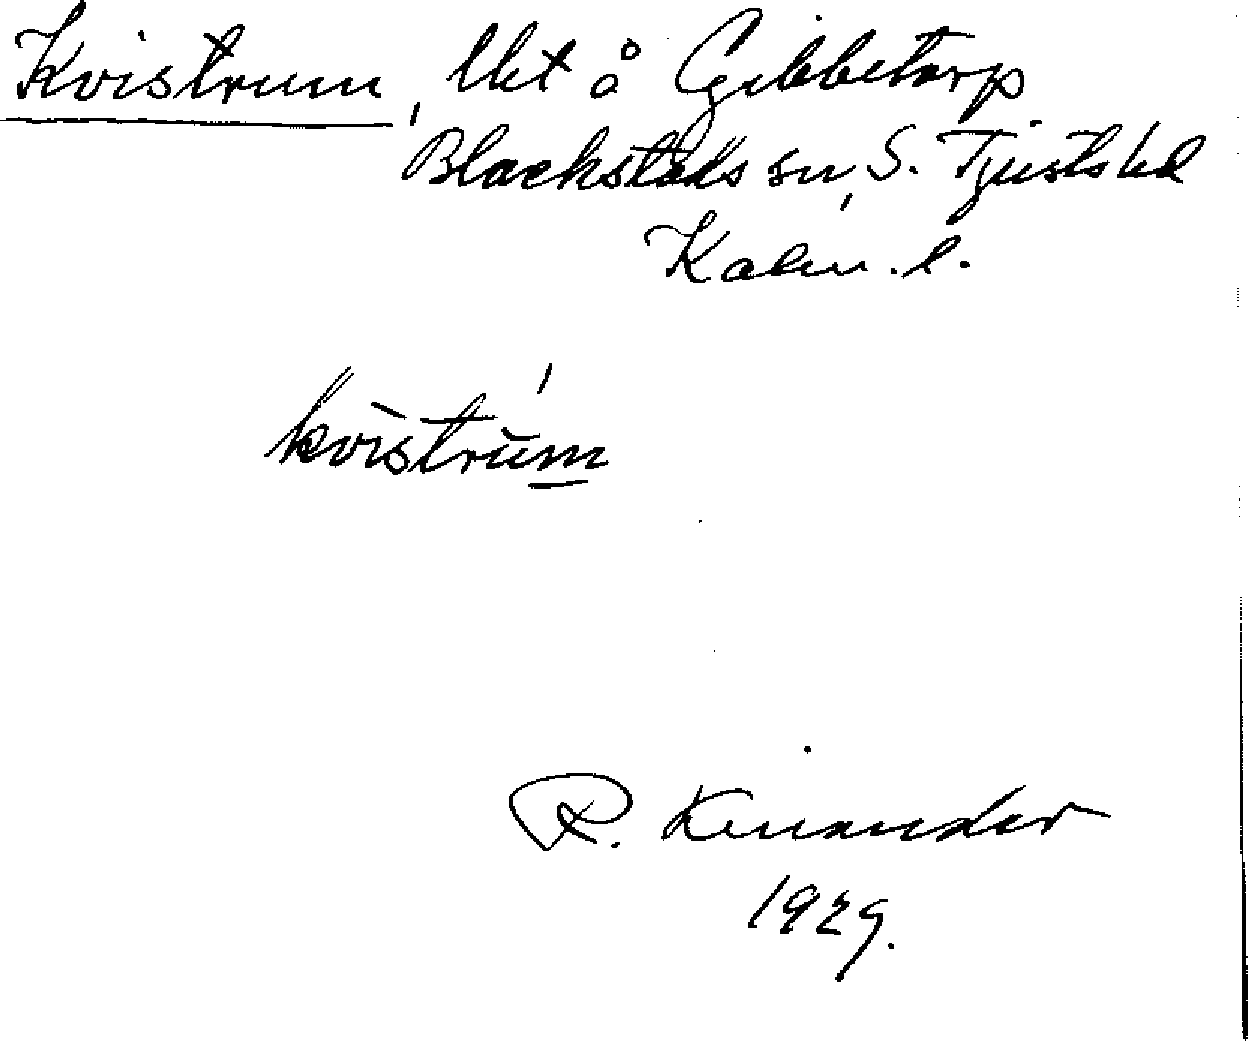 Kvistrum, lht å Gibbetorp
Blackstads sn, S. Tjusts hd
Kalm. l.
kvìstrŭm
R. Kinander
1929.